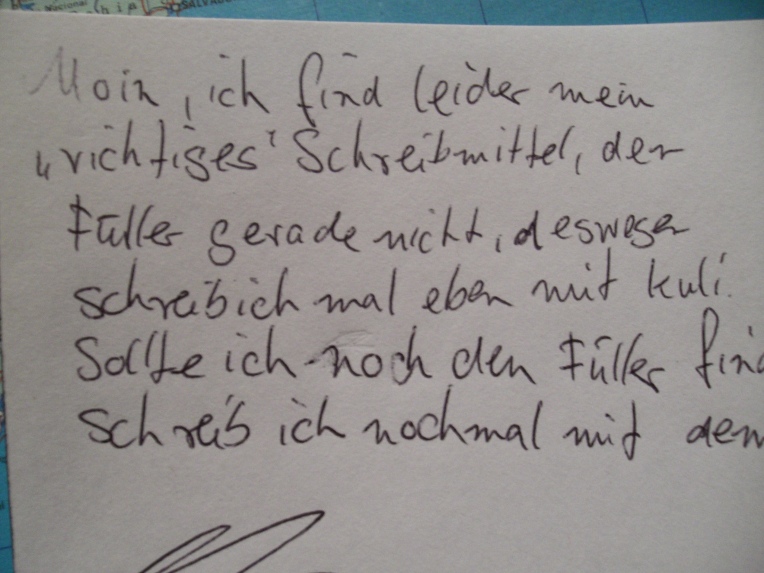 Nacional
SALVADOR
Moin, ich find leider mein
„richtiges" Schreibmittel, der
Füller gerade nicht, deswegen
schreib ich mal eben mit Kuli.
Sollte ich noch den Füller find
Schreib ich nochmal mit dem